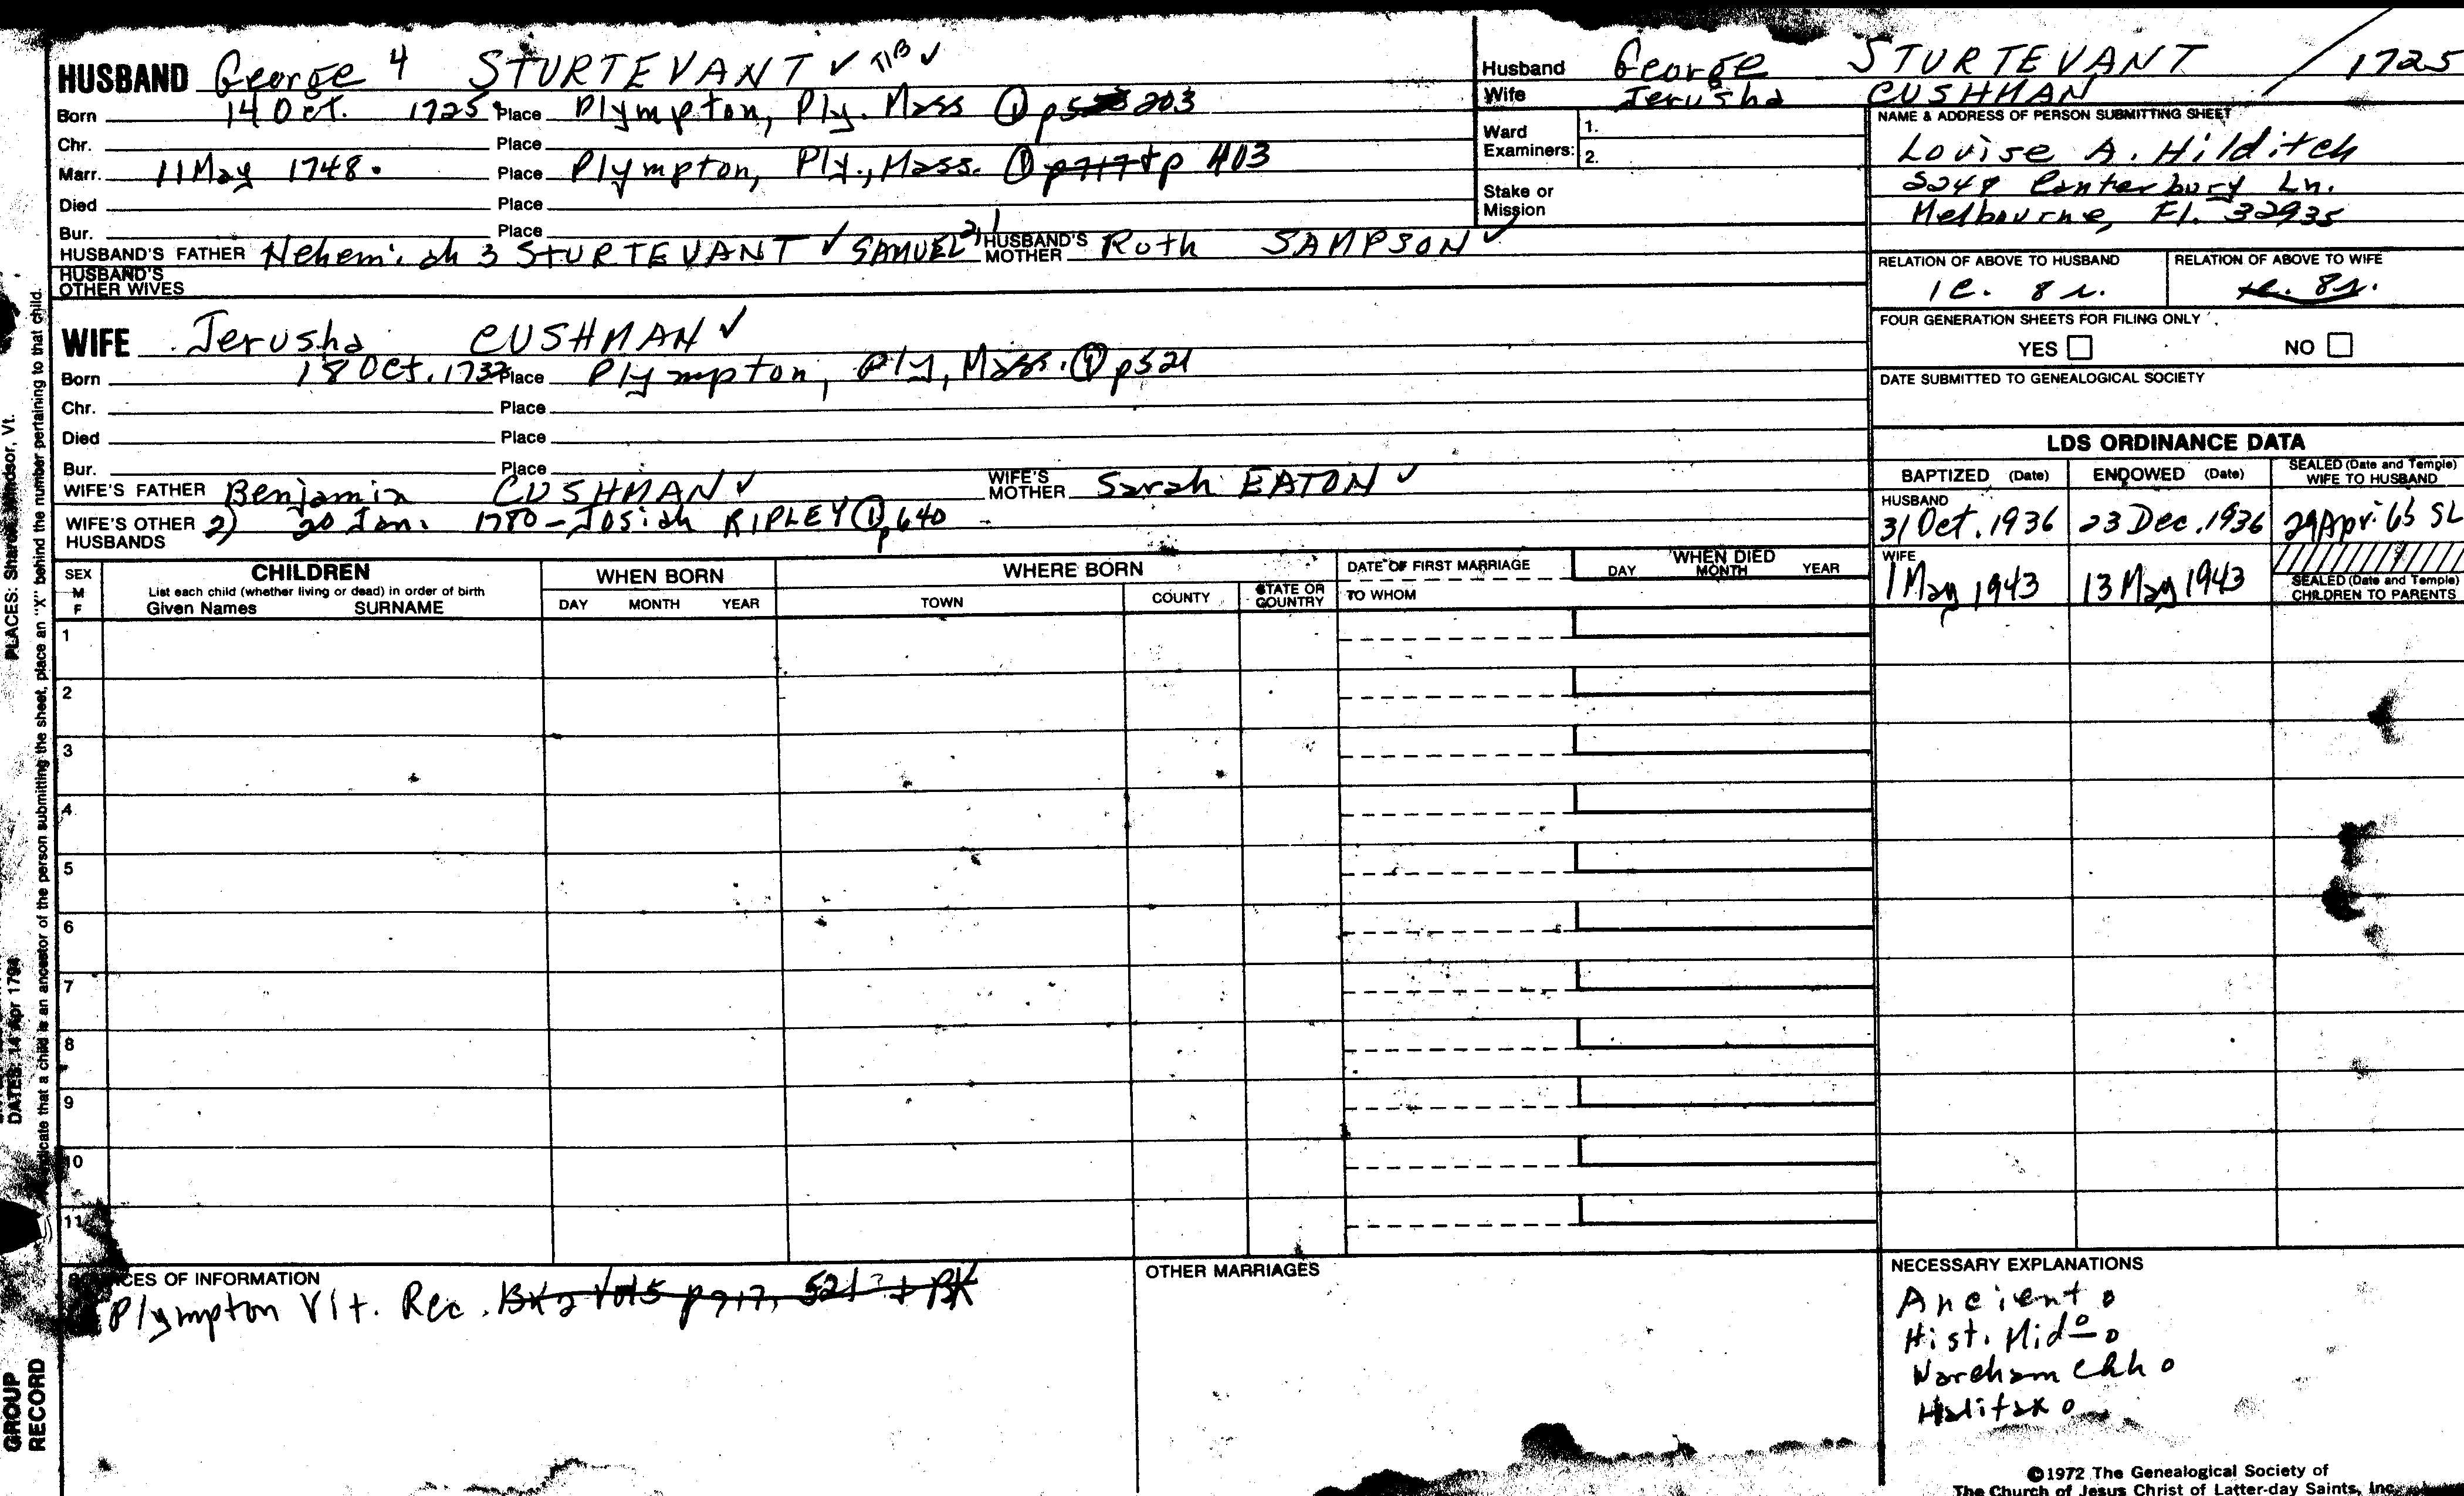 HUSBAND George 4 STURTEVANT ✓ TIB ✓
Born 14 Oct. 1725. Place Plympton, Ply. Mass ① p 203
Chr. Place
Marr. 11 May 1748. Place Plympton, Ply., Mass. ① p717 + p 403
Died Place
Bur. Place
HUSBAND'S FATHER Nehemiah 3 STURTEVANT ✓ SAMUEL 2,1 HUSBAND'S MOTHER Ruth SAMPSON ✓
HUSBAND'S OTHER WIVES
WIFE Jerusha CUSHMAN ✓
Born 18 Oct. Place Plympton, Ply, Mass. ① p521
Chr. Place
Died Place
Bur. Place
WIFE'S FATHER Benjamin CUSHMAN ✓ WIFE'S MOTHER Sarah EATON ✓
WIFE'S OTHER HUSBANDS 2) 20 Jan. 1780 - Josiah RIPLEY ① p640
Husband George STURTEVANT / 1725
Wife Jerusha CUSHMAN
Ward Examiners: 1.
2.
Stake or Mission
NAME & ADDRESS OF PERSON SUBMITTING SHEET
Louise A. Hilditch
Canterbury Ln.
Melbourne, Fl. 32935
RELATION OF ABOVE TO HUSBAND RELATION OF ABOVE TO WIFE
1c. 8 r. 8r.
FOUR GENERATION SHEETS FOR FILING ONLY
YES NO
DATE SUBMITTED TO GENEALOGICAL SOCIETY
LDS ORDINANCE DATA
BAPTIZED (Date) ENDOWED (Date) SEALED (Date and Temple) WIFE TO HUSBAND
HUSBAND
31 Oct. 1936 23 Dec. 1936 29 Apr. 65 SL
WIFE
1 May 1943 13 May 1943
SEALED (Date and Temple) CHILDREN TO PARENTS
SEX M F
CHILDREN
List each child (whether living or dead) in order of birth
Given Names SURNAME
WHEN BORN
DAY MONTH YEAR
WHERE BORN
TOWN COUNTY STATE OR COUNTRY
DATE OF FIRST MARRIAGE
TO WHOM
WHEN DIED
DAY MONTH YEAR
1
2
3
4
5
6
7
8
9
10
11
SOURCES OF INFORMATION
Plympton Vit. Rec. Bk 2 Vol 5 p 717, 521 ? + BK
OTHER MARRIAGES
NECESSARY EXPLANATIONS
Ancient o
Hist. Mido o
Wareham Chh o
Halifax o
©1972 The Genealogical Society of
The Church of Jesus Christ of Latter-day Saints, Inc.
PLACES: Sharon, Windsor, Vt.
DATES: 14 Apr 1794
indicate that a child is an ancestor of the person submitting the sheet, place an "X" behind the number pertaining to that child.
GROUP
RECORD